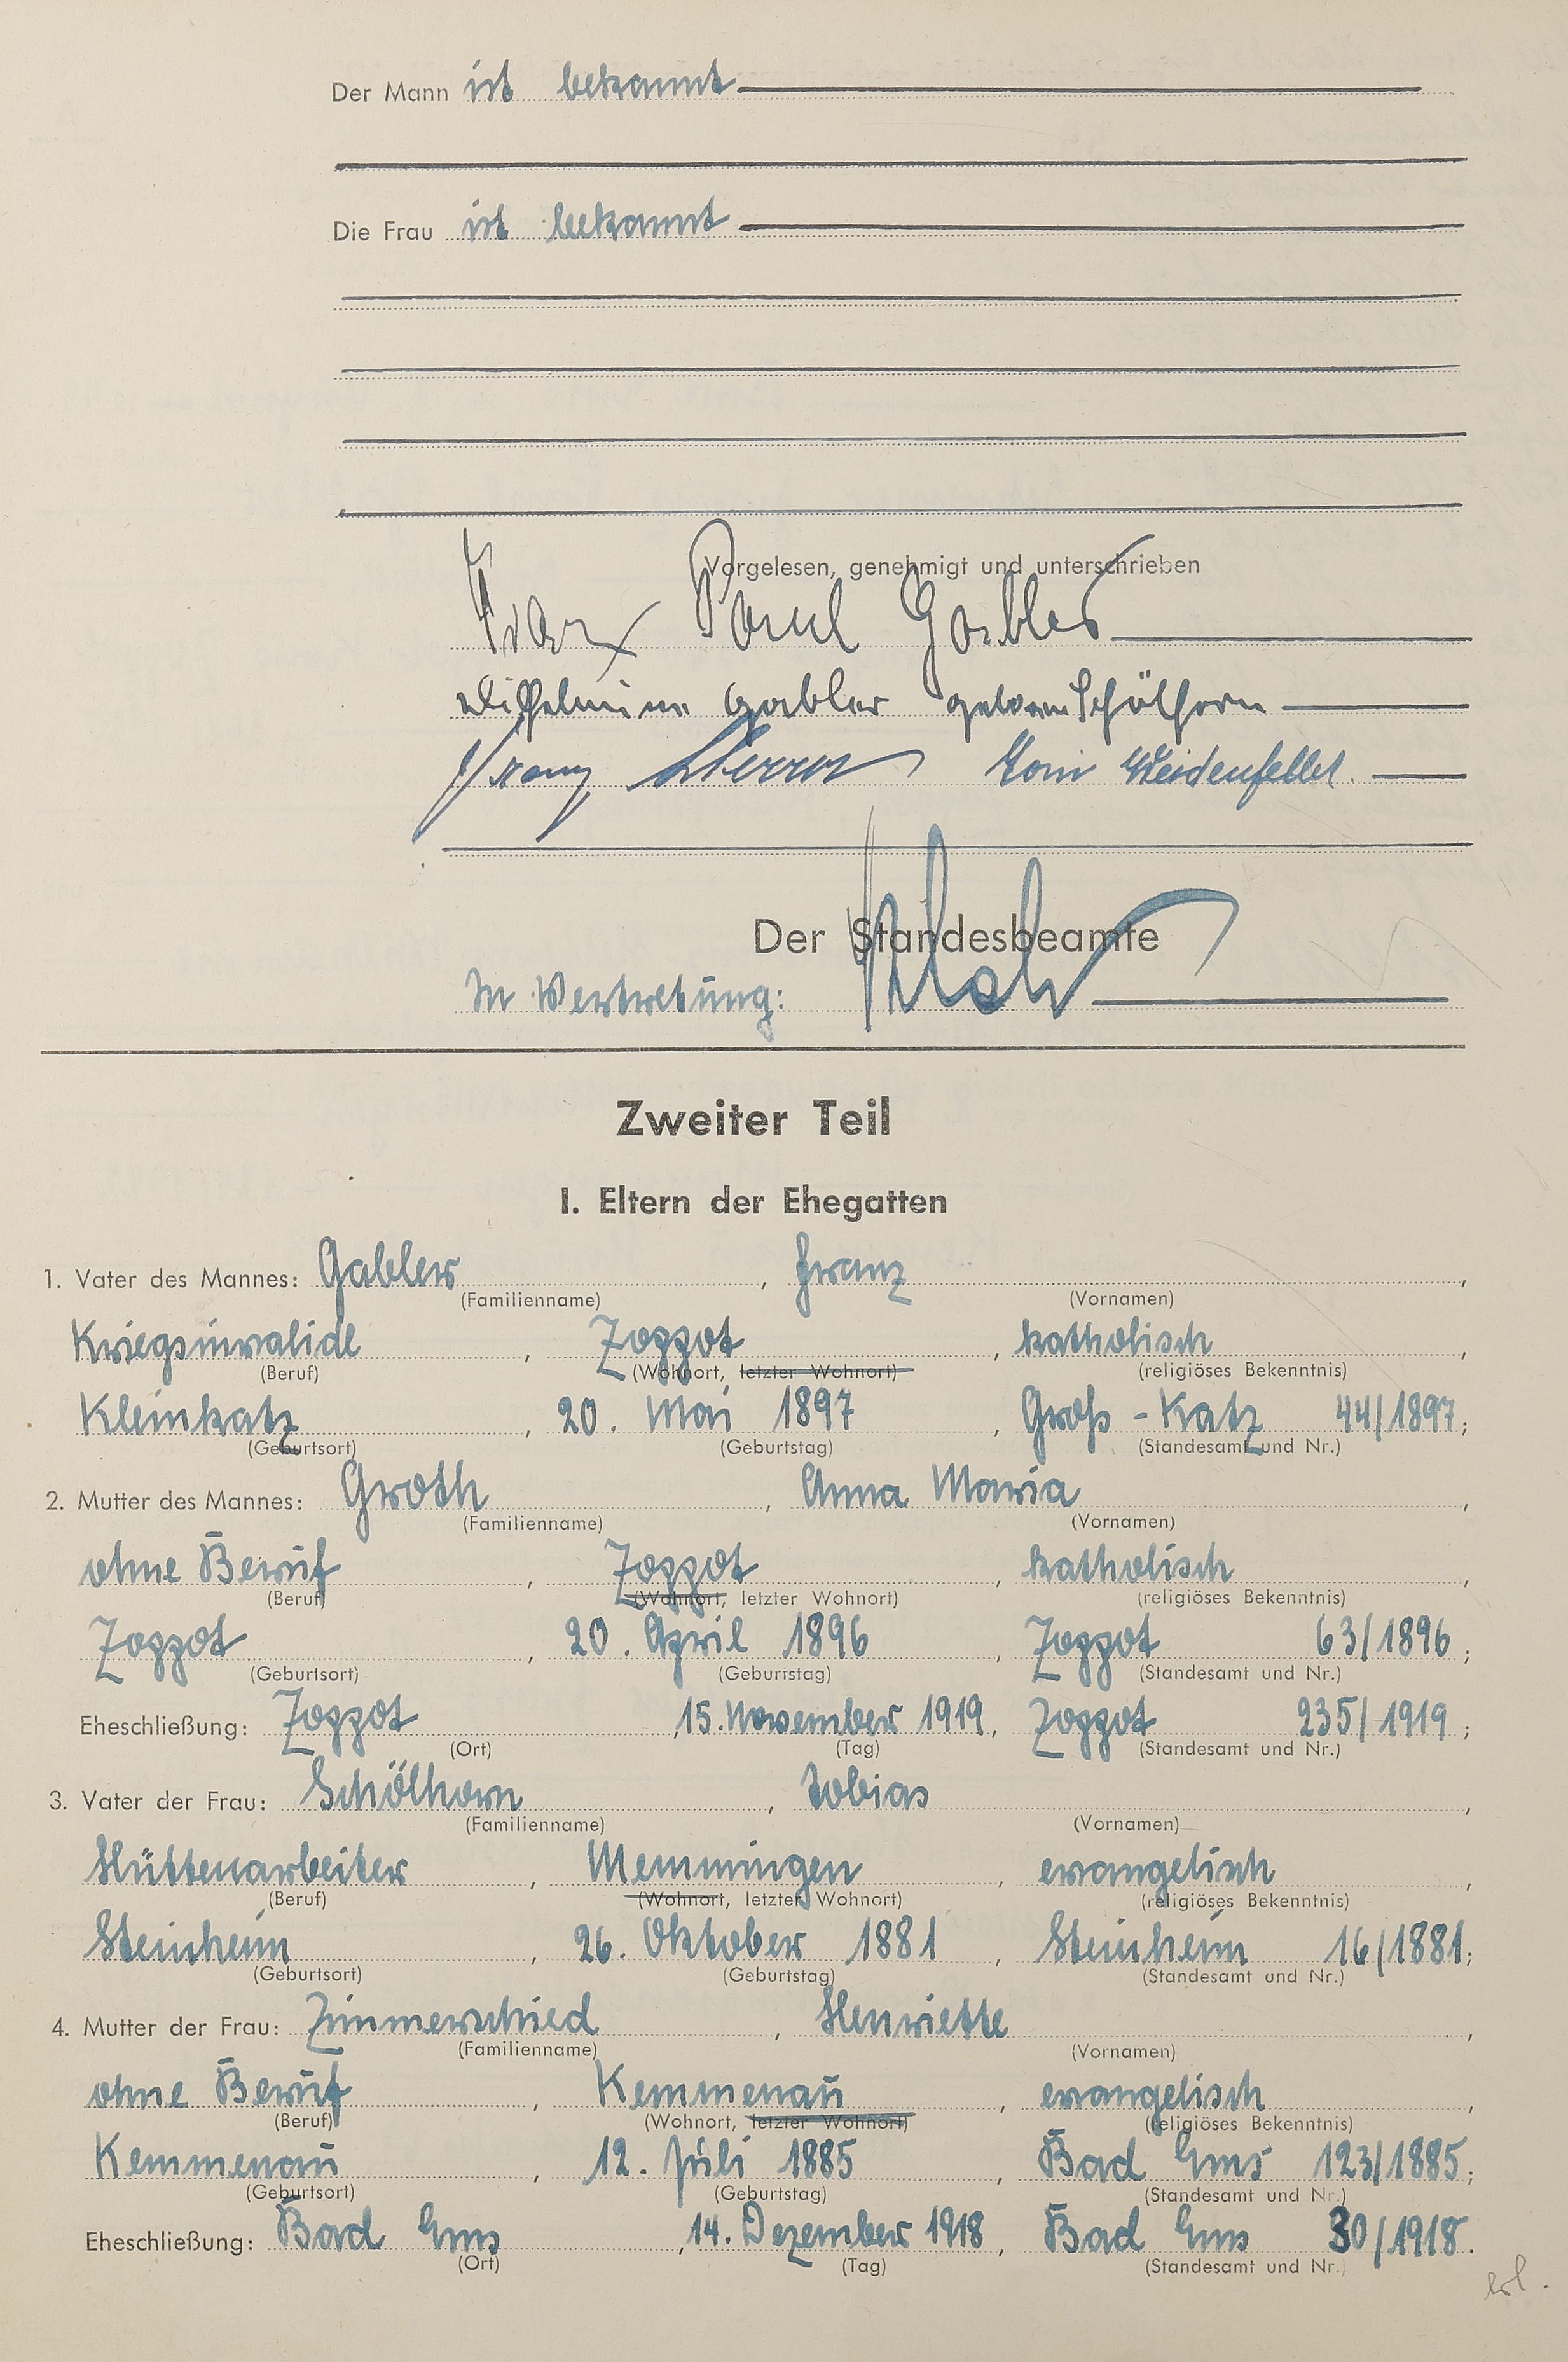 Der Mann ist bekannt
Die Frau ist bekannt
Vorgelesen, genehmigt und unterschrieben
Franz Paul Gabler
Wilhelmine Gabler geboren Schölhorn
Franz Toni Weidenfeller.
Der Standesbeamte
In Vertretung:
Zweiter Teil
I. Eltern der Ehegatten
1. Vater des Mannes: Gabler, Franz,
(Familienname) (Vornamen)
Kriegsinvalide, Zoppot, katholisch,
(Beruf) (Wohnort, letzter Wohnort) (religiöses Bekenntnis)
Kleinkatz, 20. Mai 1897, Groß-Katz 44/1897;
(Geburtsort) (Geburtstag) (Standesamt und Nr.)
2. Mutter des Mannes: Groth, Anna Maria,
(Familienname) (Vornamen)
ohne Beruf, Zoppot, katholisch,
(Beruf) (Wohnort, letzter Wohnort) (religiöses Bekenntnis)
Zoppot, 20. April 1896, Zoppot 63/1896;
(Geburtsort) (Geburtstag) (Standesamt und Nr.)
Eheschließung: Zoppot, 15. November 1919, Zoppot 235/1919;
(Ort) (Tag) (Standesamt und Nr.)
3. Vater der Frau: Schölhorn, Tobias,
(Familienname) (Vornamen)
Hüttenarbeiter, Memmingen, evangelisch,
(Beruf) (Wohnort, letzter Wohnort) (religiöses Bekenntnis)
Steinheim, 26. Oktober 1881, Steinheim 16/1881;
(Geburtsort) (Geburtstag) (Standesamt und Nr.)
4. Mutter der Frau: Zimmerschied, Henriette,
(Familienname) (Vornamen)
ohne Beruf, Kemmenau, evangelisch,
(Beruf) (Wohnort, letzter Wohnort) (religiöses Bekenntnis)
Kemmenau, 12. Juli 1885, Bad Ems 123/1885;
(Geburtsort) (Geburtstag) (Standesamt und Nr.)
Eheschließung: Bad Ems, 14. Dezember 1918, Bad Ems 30/1918.
(Ort) (Tag) (Standesamt und Nr.)